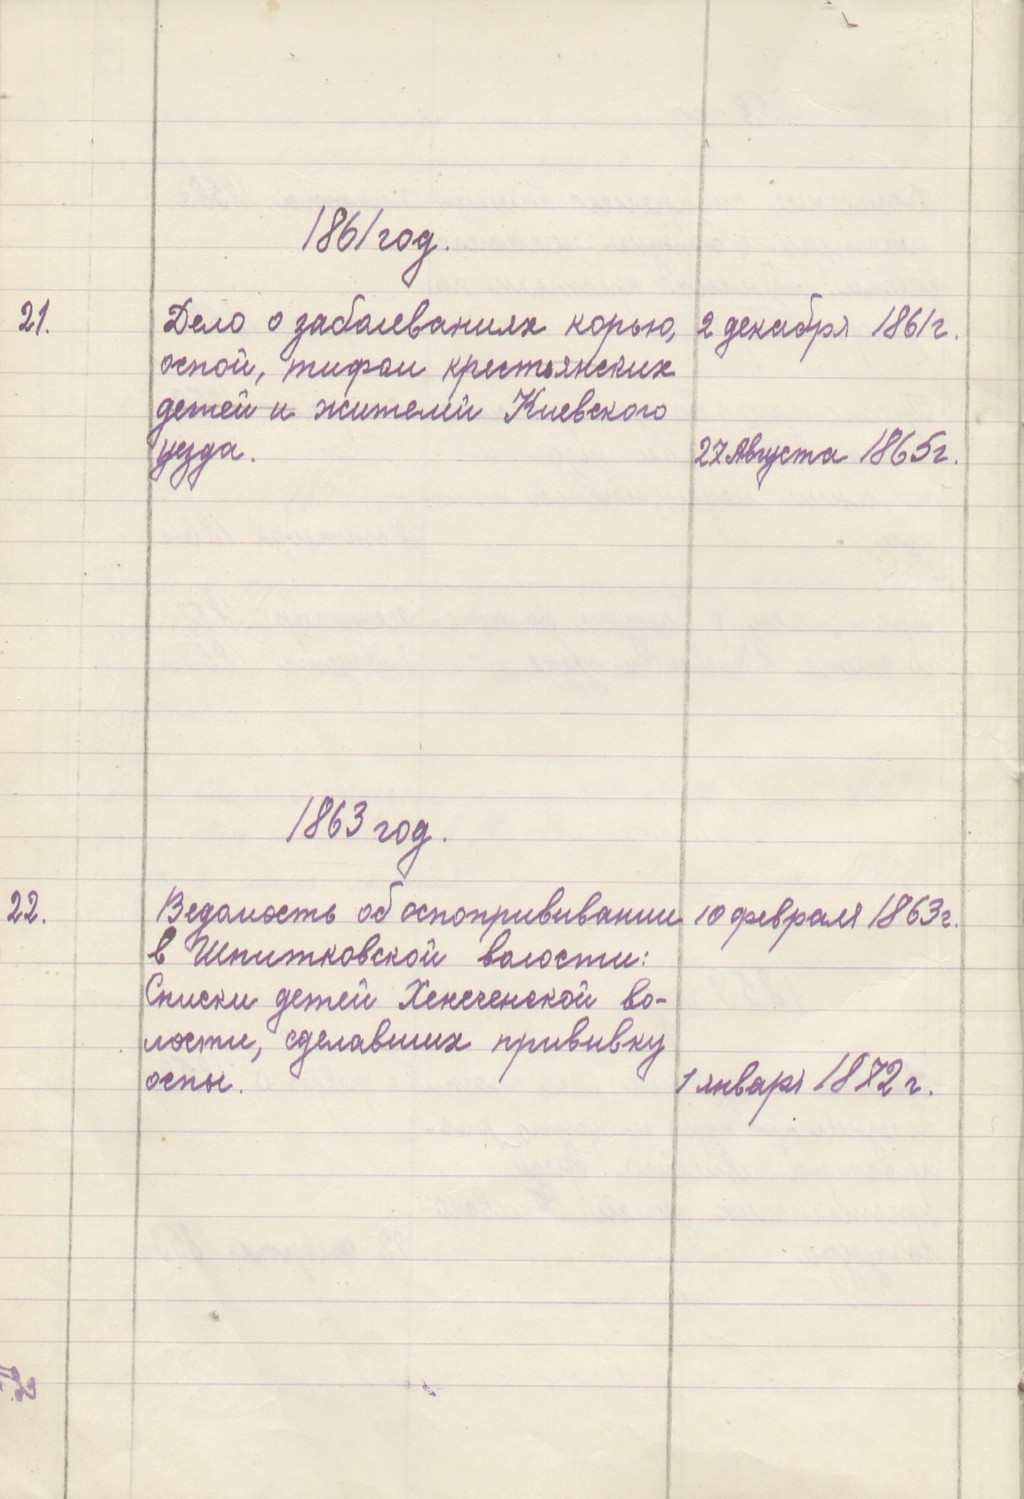 1861 год.
21. Дело о заболеваниях корью, 2 декабря 1861 г.
оспой, тифом крестьянских
детей и жителей Киевского
уезда. 27 Августа 1865 г.
1863 год.
22. Ведомость об оспопрививании 10 февраля 1863 г.
в Шпитковской волости:
Списки детей во-
лости, сделавших прививку
оспы. 1 января 1872 г.